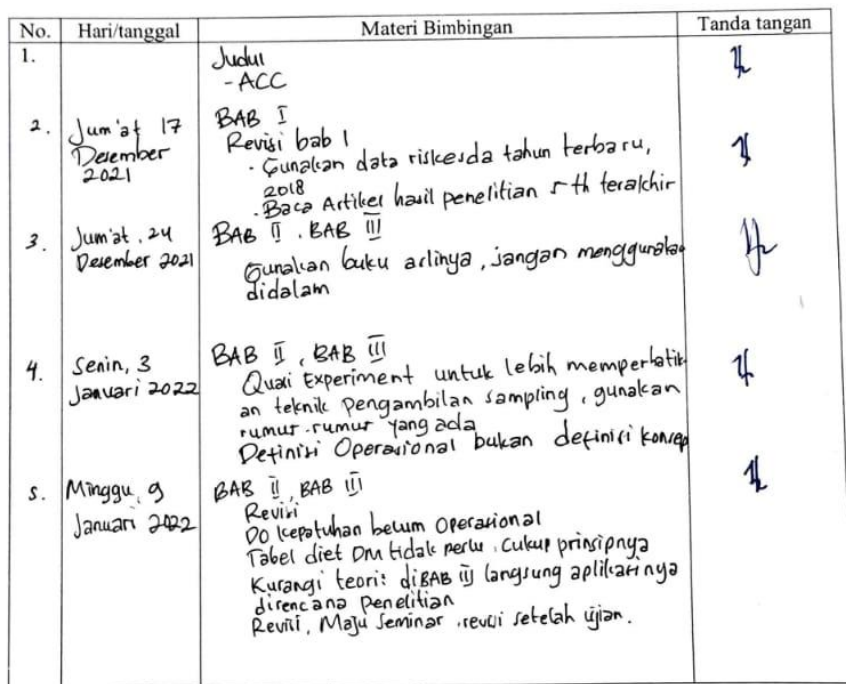 No. Hari/tanggal Materi Bimbingan Tanda tangan
1. Judul
- ACC
2. Jum'at 17 Desember 2021
BAB I
Revisi bab 1
· Gunakan data riskesda tahun terbaru,
2018
· Baca Artikel hasil penelitian 5 th terakhir
3. Jum'at, 24 Desember 2021
BAB II . BAB III
Gunakan buku aslinya, jangan menggunakan
didalam
4. Senin, 3 Januari 2022
BAB II, BAB III
Quasi Experiment untuk lebih memperhatik
an teknik pengambilan sampling, gunakan
rumus-rumus yang ada
Definisi Operasional bukan definisi konsep
5. Minggu, 9 Januari 2022
BAB II, BAB III
Revisi
DO kepatuhan belum Operasional
Tabel diet DM tidak perlu. Cukup prinsipnya
Kurangi teori: diBAB III langsung aplikasinya
direncana Penelitian
Revisi, Maju Seminar, revisi setelah ujian.